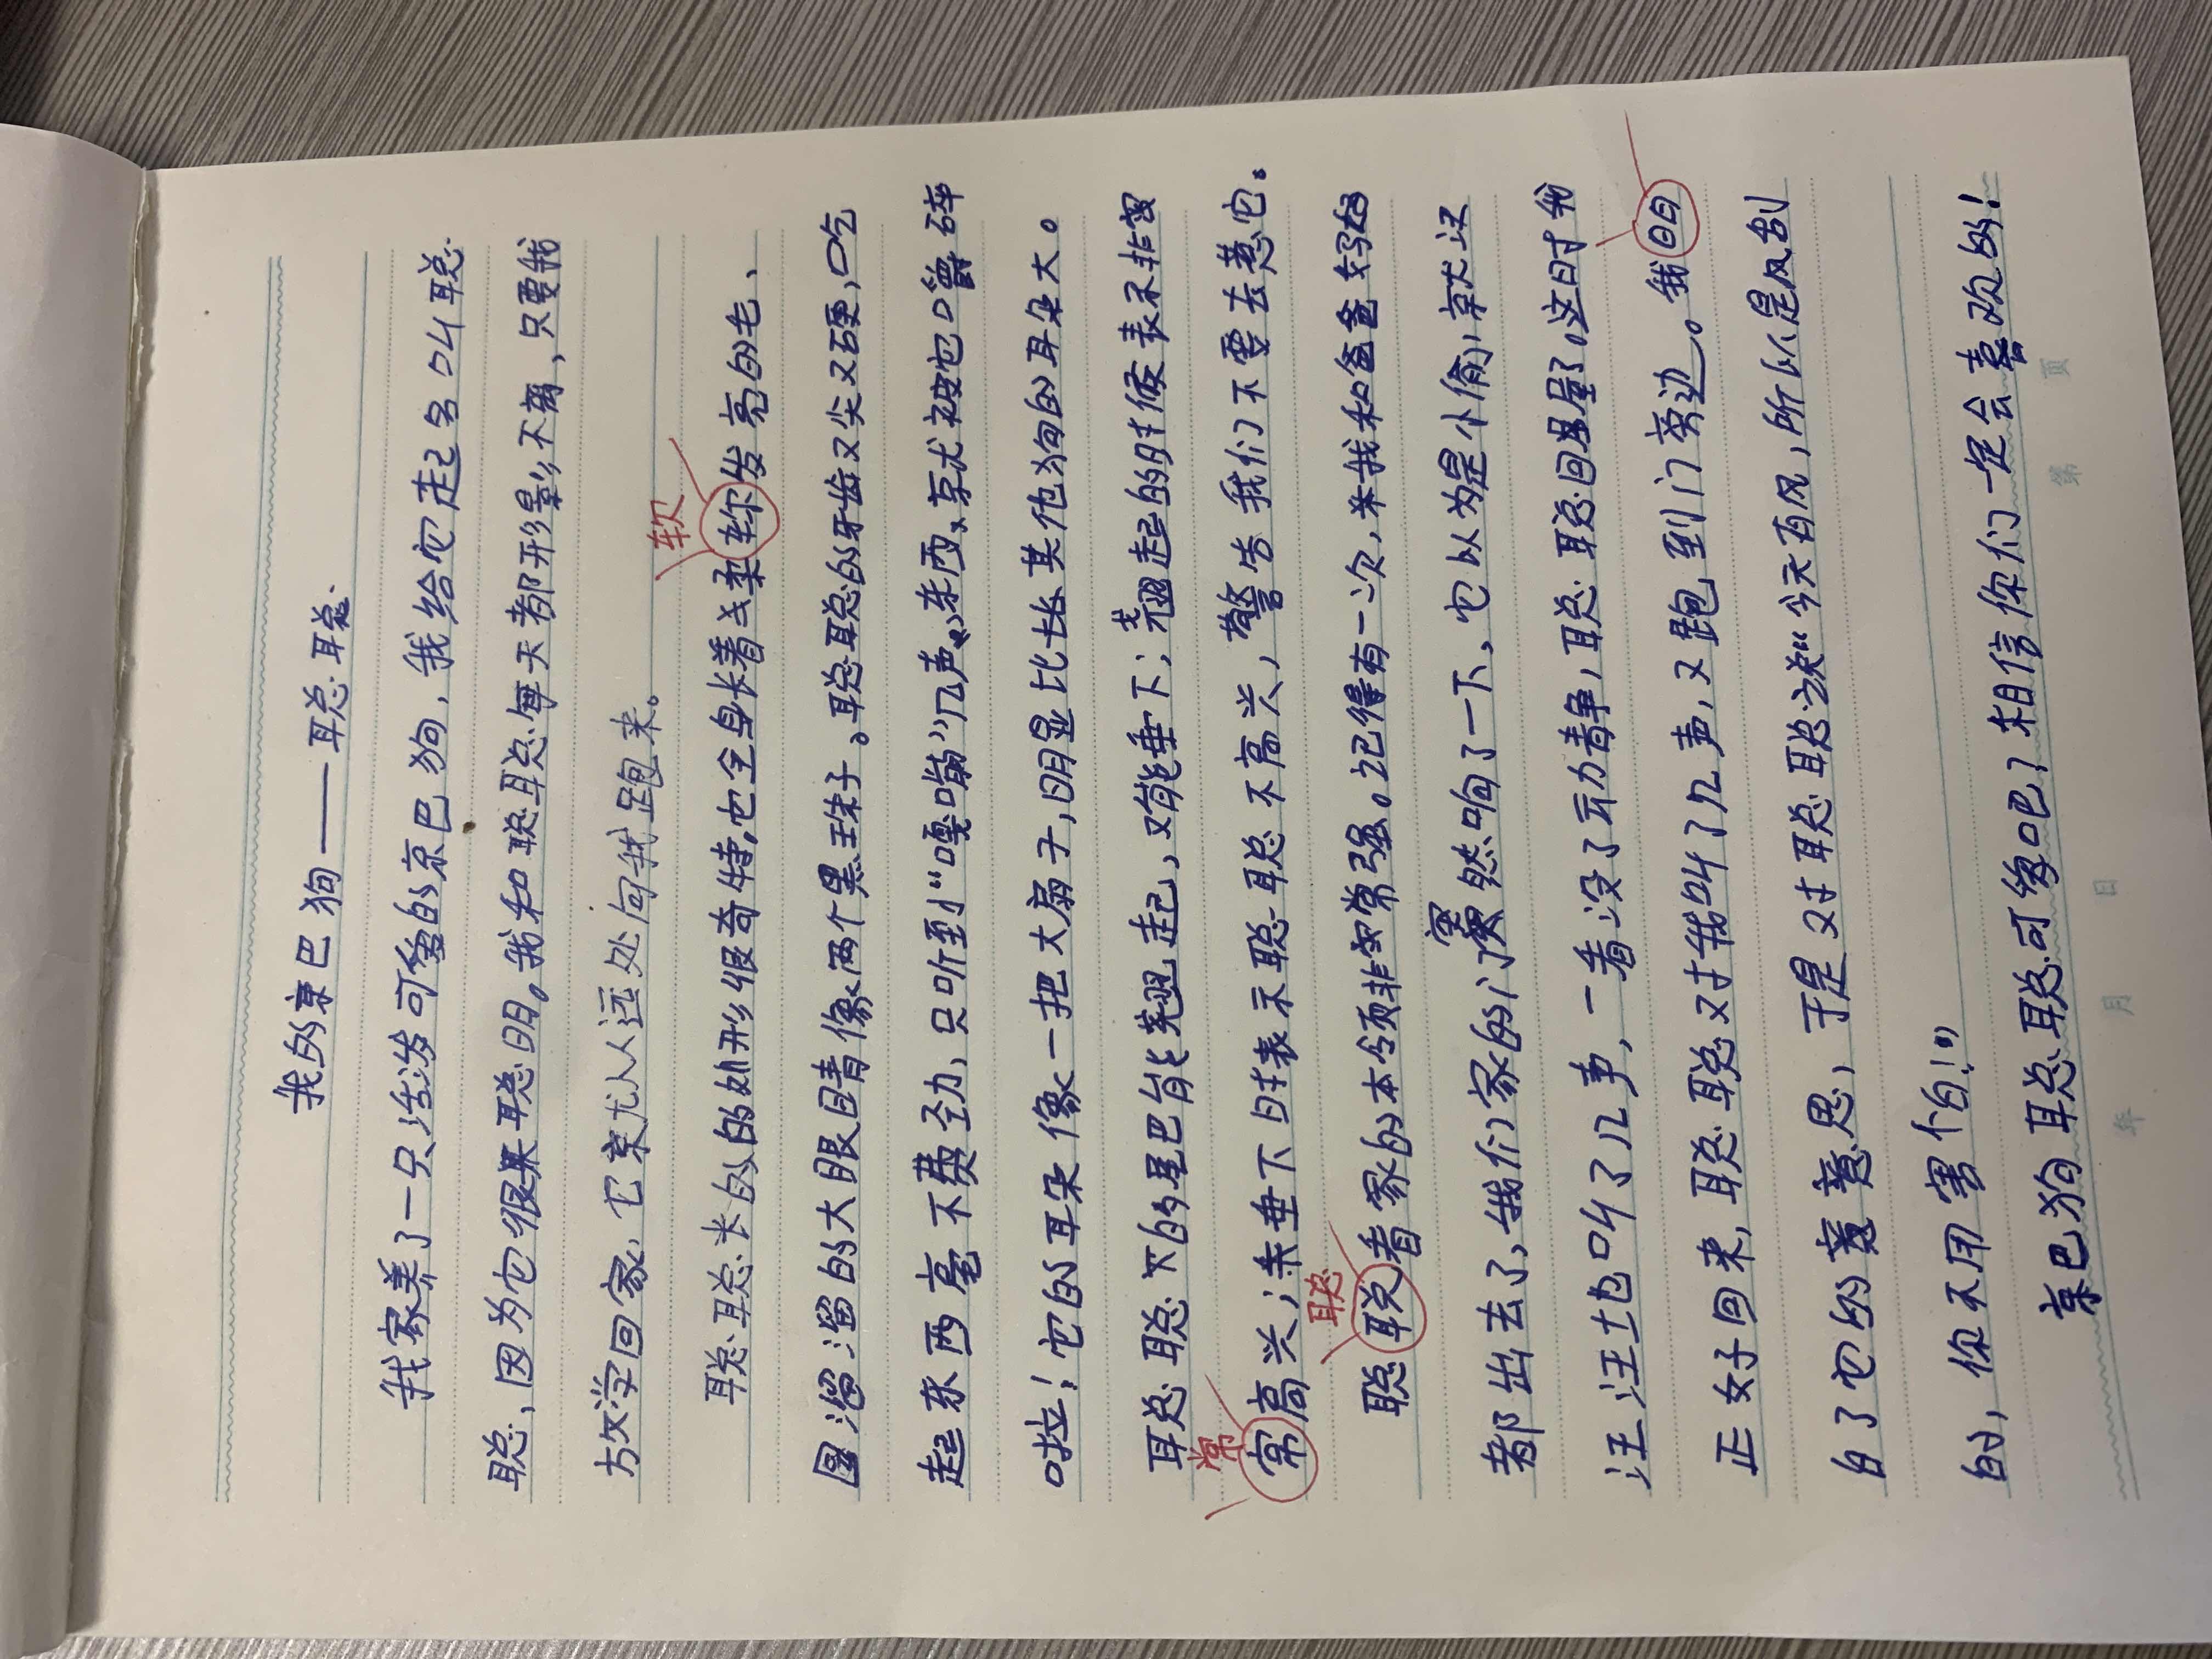 我的京巴狗——聪聪
我家养了一只活泼可爱的京巴狗，我给它起名叫聪
聪，因为它很聪明。我和聪聪每天都形影不离，只要我
放学回家，它就从远处向我跑来。
软
聪聪长的的外形很奇特，它全身长着柔软发亮的毛、
圆溜溜的大眼睛像两个黑珠子。聪聪的牙齿又尖又硬，吃
起东西毫不费劲，只听到“嘎嘣”几声，东西就被它嚼碎
啦！它的耳朵像一把大扇子，明显比长其他狗的耳朵大。
聪聪的尾巴能翘起，又能垂下；翘起的时候表示非常
常
常高兴；垂下时表示聪聪不高兴，警告我们不要去惹它。
聪
聪聪看家的本领非常强。记得有一次，我和爸爸妈妈
都出去了，我们家的门突然响了一下，它以为是小偷，就汪
汪汪地叫了几声，一看没了动静，聪聪回屋了。这时我
正好回来，聪聪对我叫了几声，又跑到门旁边。我明
白了它的意思，于是对聪聪说“今天有风，所以是风刮
的，你不用害怕！”
京巴狗聪聪可爱吧？相信你们一定会喜欢的！
年 月 日 第 页